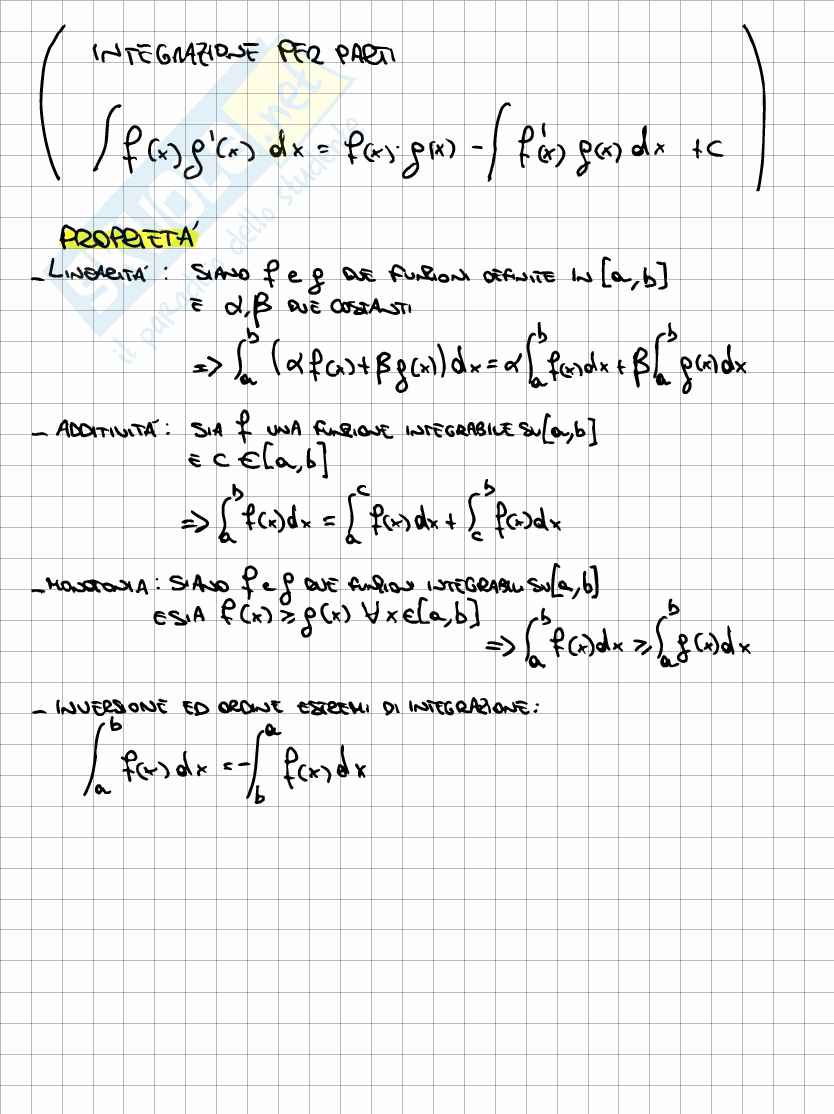 INTEGRAZIONE PER PARTI
∫ f(x) g'(x) dx = f(x) · g(x) - ∫ f'(x) g(x) dx + c
PROPRIETÀ
- LINEARITÀ: SIANO f e g DUE FUNZIONI DEFINITE IN [a,b]
E α,β DUE COSTANTI
=> ∫_a^b (α f(x) + β g(x)) dx = α ∫_a^b f(x) dx + β ∫_a^b g(x) dx
- ADDITIVITÀ: SIA f UNA FUNZIONE INTEGRABILE SU [a,b]
E c ∈ [a,b]
=> ∫_a^b f(x) dx = ∫_a^c f(x) dx + ∫_c^b f(x) dx
- MONOTONIA: SIANO f e g DUE FUNZIONI INTEGRABILI SU [a,b]
E SIA f(x) ≥ g(x) ∀ x ∈ [a,b]
=> ∫_a^b f(x) dx ≥ ∫_a^b g(x) dx
- INVERSIONE ED ORDINE ESTREMI DI INTEGRAZIONE:
∫_a^b f(x) dx = - ∫_b^a f(x) dx
SKUOLA.net
il paradiso dello studente